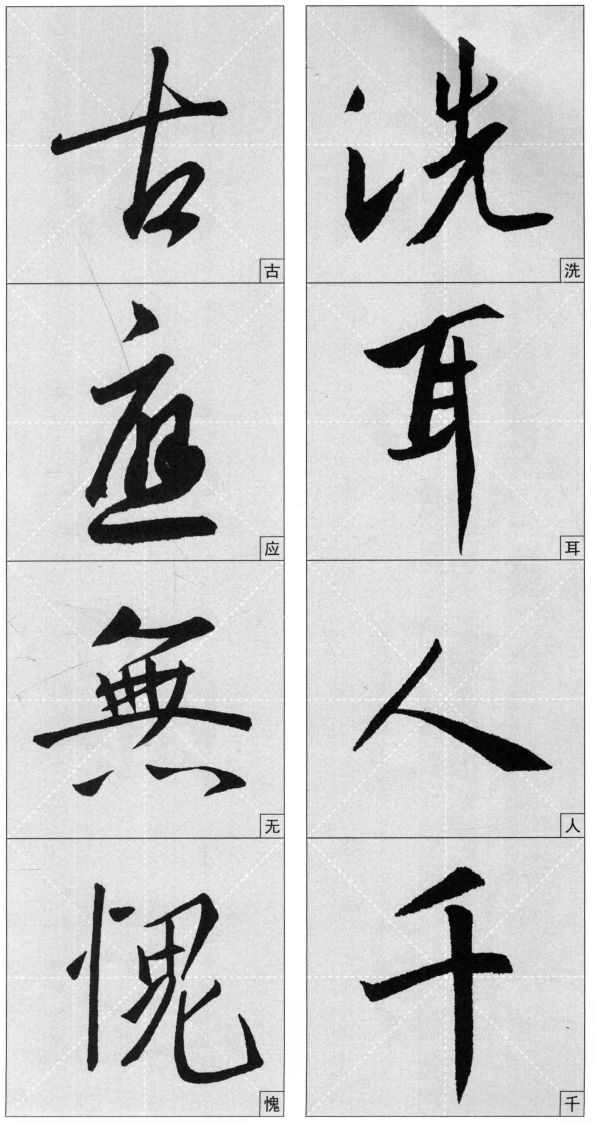 洗 洗
耳 耳
人 人
千 千
古 古
應 应
無 无
愧 愧